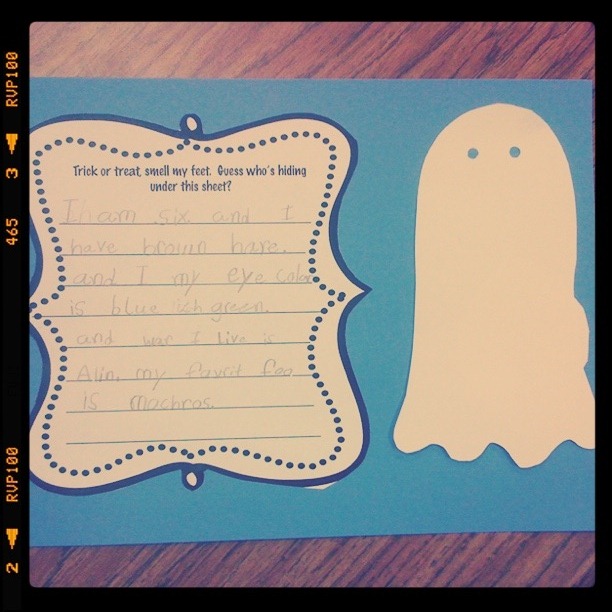 Trick or treat, smell my feet. Guess who's hiding
under this sheet?
I am six and I
have brown hare.
and I my eye color
is blue ish green.
and war I live is
Alin. my favrit foo
is machros.
RVP100
3
465
RVP100
2